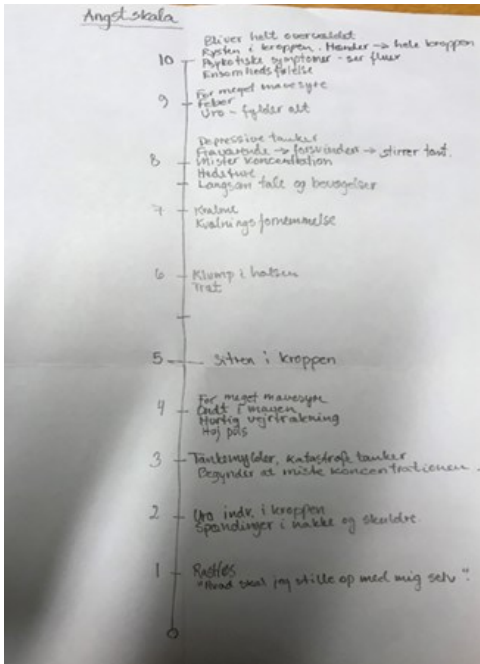 Angstskala
Bliver helt overvældet
Rysten i kroppen. Hænder → hele kroppen
10 Psykotiske symptomer - ser fluer
Ensomhedsfølelse
For meget mavesyre
9 Feber
Uro - fylder alt
Depressive tanker
Fraværende → forsvinder → stirrer tomt.
8 Mister koncentration
Hedeture
Langsom tale og bevægelser
7 Kvalme
Kvælningsfornemmelse
6 Klump i halsen
Træt
5 Sitren i kroppen
For meget mavesyre
4 Ondt i maven
Hurtig vejrtrækning
Høj puls
3 Tankemylder, katastrofe tanker
Begynder at miste koncentrationen.
2 Uro indv. i kroppen
Spændinger i nakke og skuldre.
1 Rastløs
"Hvad skal jeg stille op med mig selv".
0